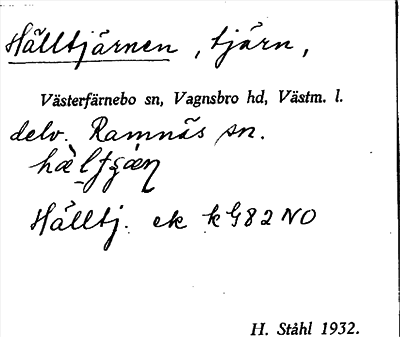 Hälltjärnen, tjärn,
Västerfärnebo sn, Vagnsbro hd, Västm. l.
delv. Ramnäs sn.
Hälltj. ek kG82NO
H. Ståhl 1932.